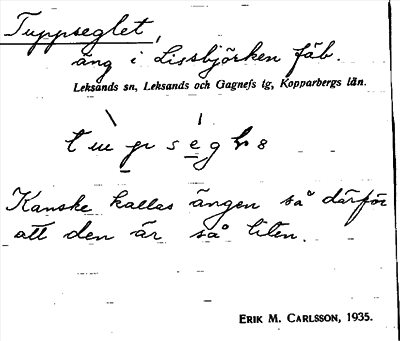 Tuppseglet,
äng i Lissbjörken fäb.
Leksands sn, Leksands och Gagnefs tg, Kopparbergs län.
Kanske kallas ängen så därför
att den är så liten.
ERIK M. CARLSSON, 1935.